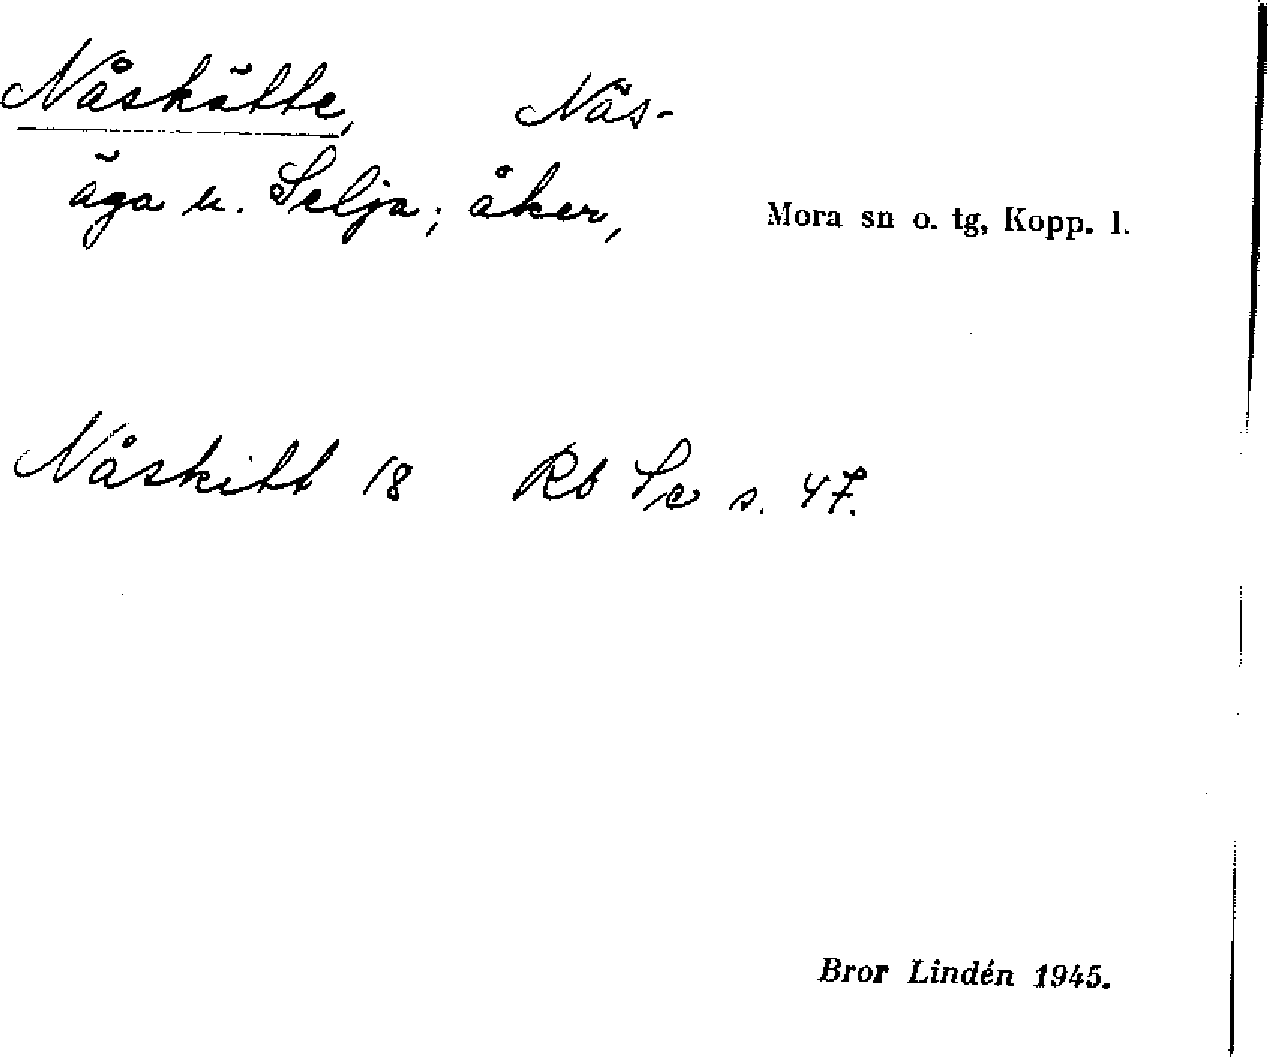 Nåskätte, Näs-
äga u. Selja; åker,
Mora sn o. tg, Kopp. l.
Nåskitt 18 Rb Se s. 47.
Bror Lindén 1945.